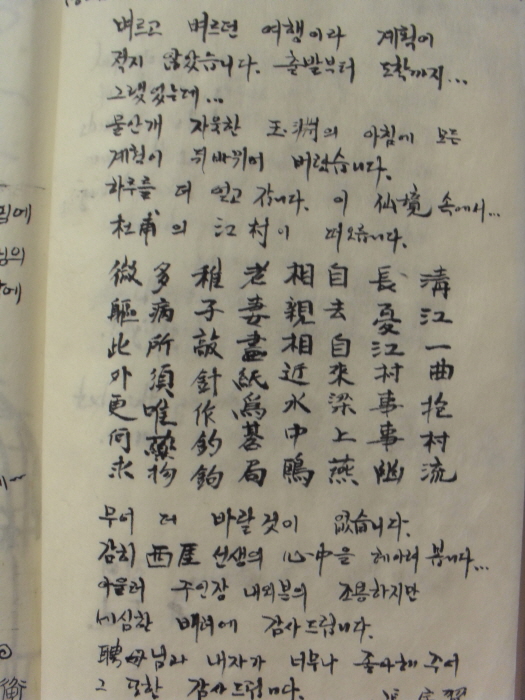 벼르고 벼르던 여행이라 계획이
적지 않았습니다. 출발부터 도착까지...
그랬었는데...
물안개 자욱한 玉淵의 아침에 모든
계획이 뒤바뀌어 버렸습니다.
하루를 더 얻고 갑니다. 이 仙境 속에서...
杜甫의 江村이 떠오릅니다.
淸江一曲抱村流
長憂江村事事幽
自去自來梁上燕
相親相近水中鷗
老妻畵紙爲碁局
稚子敲針作釣鉤
多病所須唯藥物
微軀此外更何求
무어 더 바랄 것이 없습니다.
감히 西厓 선생의 心中을 헤아려 봅니다...
아울러 주인장 내외분의 조용하지만
세심한 배려에 감사드립니다.
聘母님과 내자가 너무나 좋아해 주어
그 또한 감사드립니다.